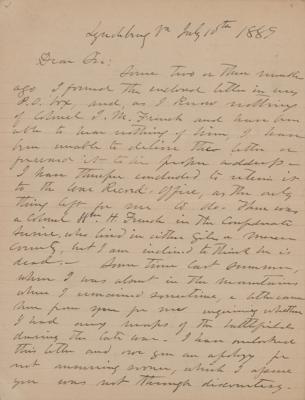 Lynchburg Va July 10th 1889
Dear Sir:
Some two or three weeks
ago I found the enclosed letter in my
P.O. box, and, as I know nothing
of Colonel J. M. French and have been
able to hear nothing of him, I have
been unable to deliver the letter or
forward it to its proper address.
I have therefore concluded to return it
to the War Record Office, as the only
thing left for me to do. There was
a Colonel Wm H. French in the Confederate
Service, who lived in either Giles or Mercer
County, but I am inclined to think he is
dead.
Some time last summer,
when I was about in the mountains
where I remained sometime, a letter came
here from you for me inquiring whether
I had any maps of the battlefields
during the late war. I have overlooked
this letter and now give an apology for
not answering sooner, which I assure
you was not through discourtesy.